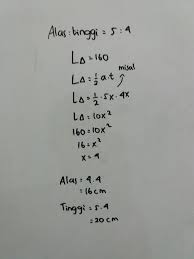 Alas : tinggi = 5 : 4
L△ = 160
misal
L△ = 1/2 a.t
L△ = 1/2 . 5x . 4x
L△ = 10x²
160 = 10x²
16 = x²
x = 4
Alas = 4.4
= 16 cm
Tinggi = 5.4
= 20 cm